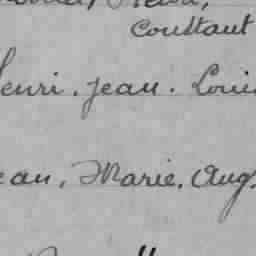 Constant
Henri. Jean. Louis
ean, Marie. Aug.